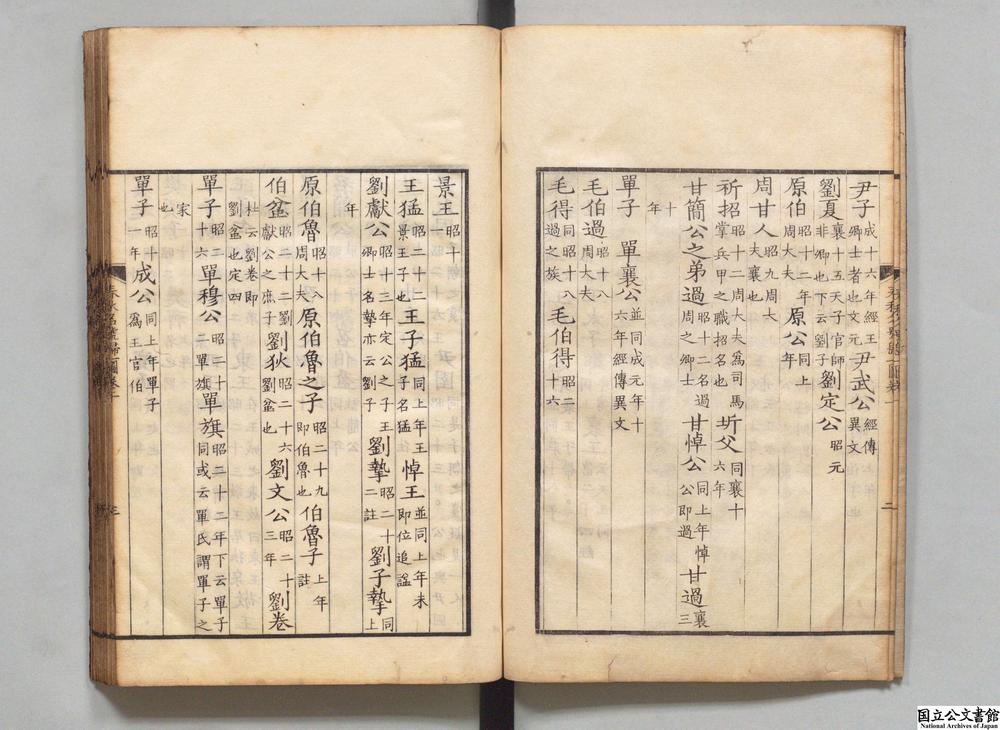 尹子成十六年經王卿士者也文元尹武公經傳異文
劉夏襄十五天子官師非卿也下云劉子劉定公昭元
原伯昭十二年周大夫原公同上年
周甘人昭九周大夫襄也
祈招昭十二周大夫為司馬掌兵甲之職招名也圻父同襄十六年
甘簡公之弟過昭十二名過周之卿士甘悼公同上年悼公即過甘過襄三
十年
單子 單襄公並同成元年十六年經傳異文
毛伯過昭十八周大夫
毛得同昭十八過之族毛伯得昭二十六
二
景王昭十
王猛昭二十二景王子也王子猛同上年王子名猛悼王並同上年未即位追諡
劉獻公昭十三年定公之子王卿士名摯亦云劉子劉摯昭二十二註劉子摯同上
年
原伯魯昭十八周大夫原伯魯之子昭二十九即伯魯也伯魯子上年註
伯盆昭二十二劉獻公之庶子劉狄昭二十六劉盆也劉文公昭二十三年劉卷
杜云劉卷即劉盆也定四
單子昭二十六單穆公昭二十二單旗單旗昭二十二年下云單子同或云單氏謂單子之
家也
單子昭十一年成公同上年單子為王官伯
三
国立公文書館
National Archives of Japan